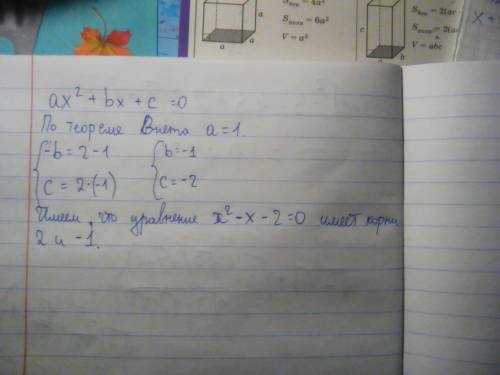 S бок = 4a²
S полн = 6a²
V = a³
a
a
a
c
a
b
S бок = 2(ac
S полн = 2(a
V = abc
x +
ax² + bx + c = 0
По теореме Виета a = 1.
-b = 2 - 1 b = -1
c = 2·(-1) c = -2
Имеем, что уравнение x² - x - 2 = 0 имеет корни
2 и -1.